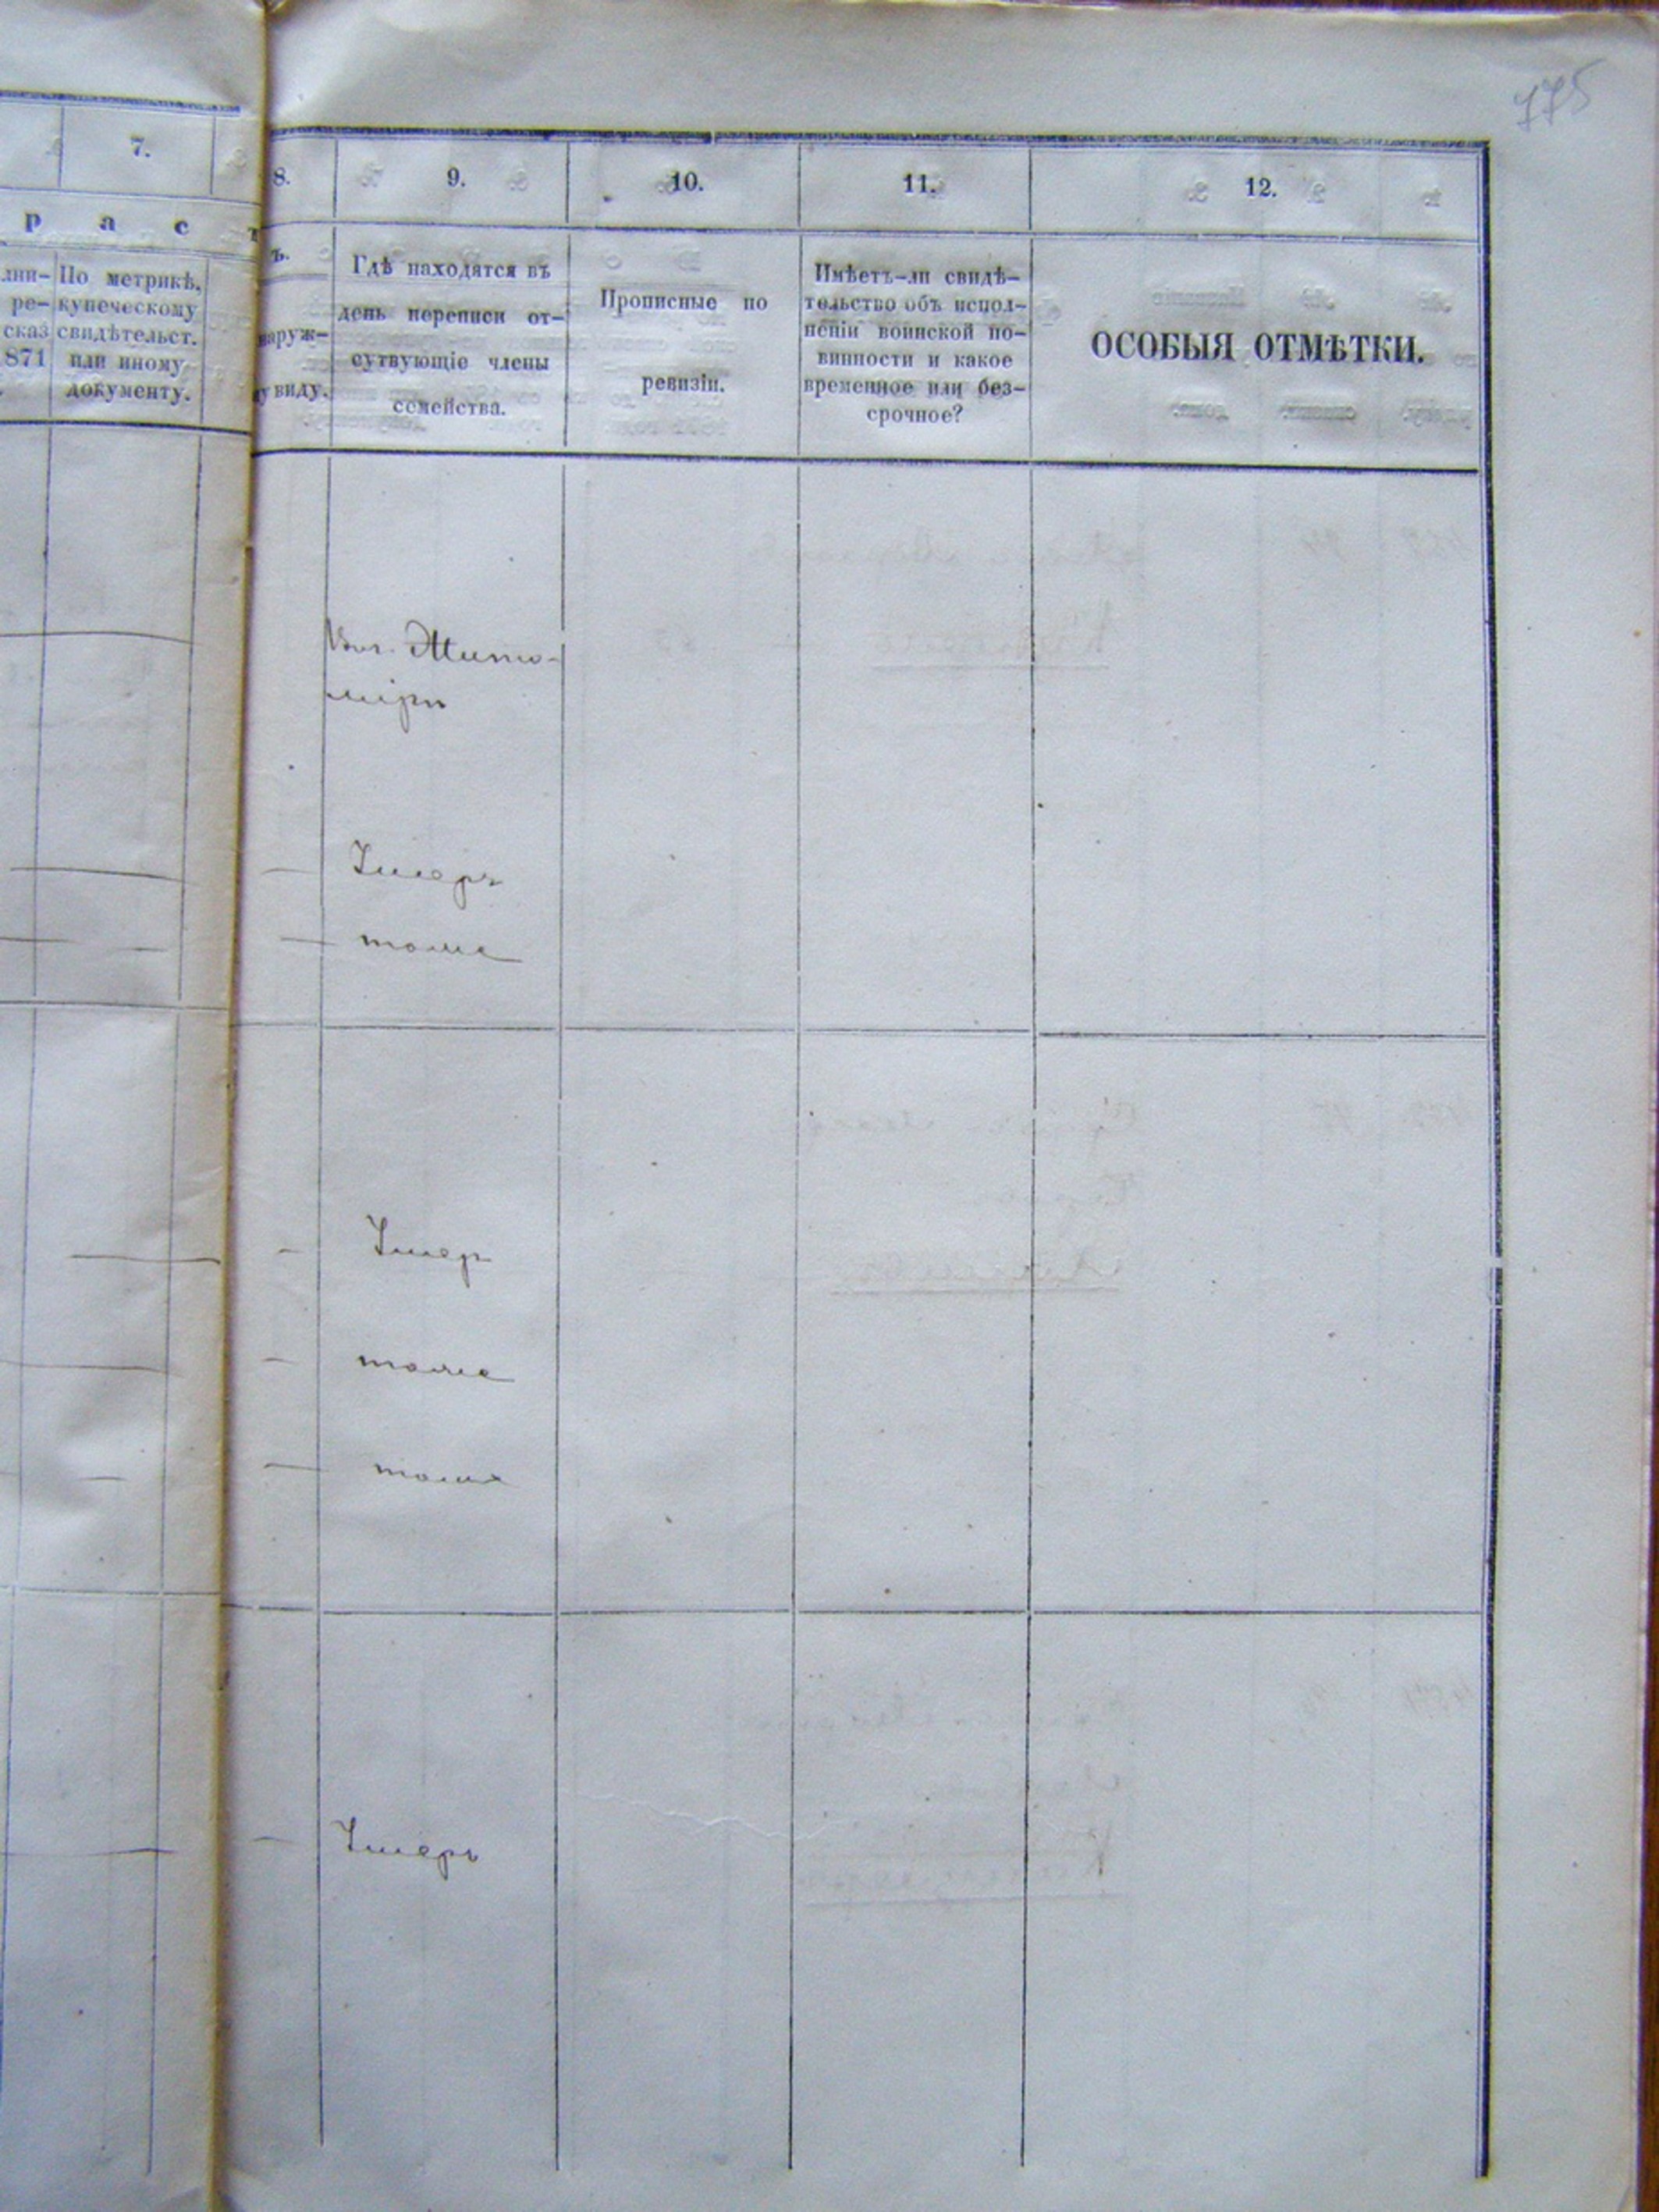 775
7.
8.
9.
10.
11.
12.
р а с т
ъ.
лни-
ре-
сказ
871
По метрикѣ,
купеческому
свидѣтельст.
или иному
документу.
наруж-
у виду.
Гдѣ находятся въ
день переписи от-
сутвующіе члены
семейства.
Прописные по
ревизіи.
Имѣетъ-ли свидѣ-
тельство объ испол-
неніи воинской по-
винности и какое
временное или без-
срочное?
ОСОБЫЯ ОТМѢТКИ.
Жито-
мірѣ
Умеръ
тоже
Умер
тоже
тоже
Умеръ